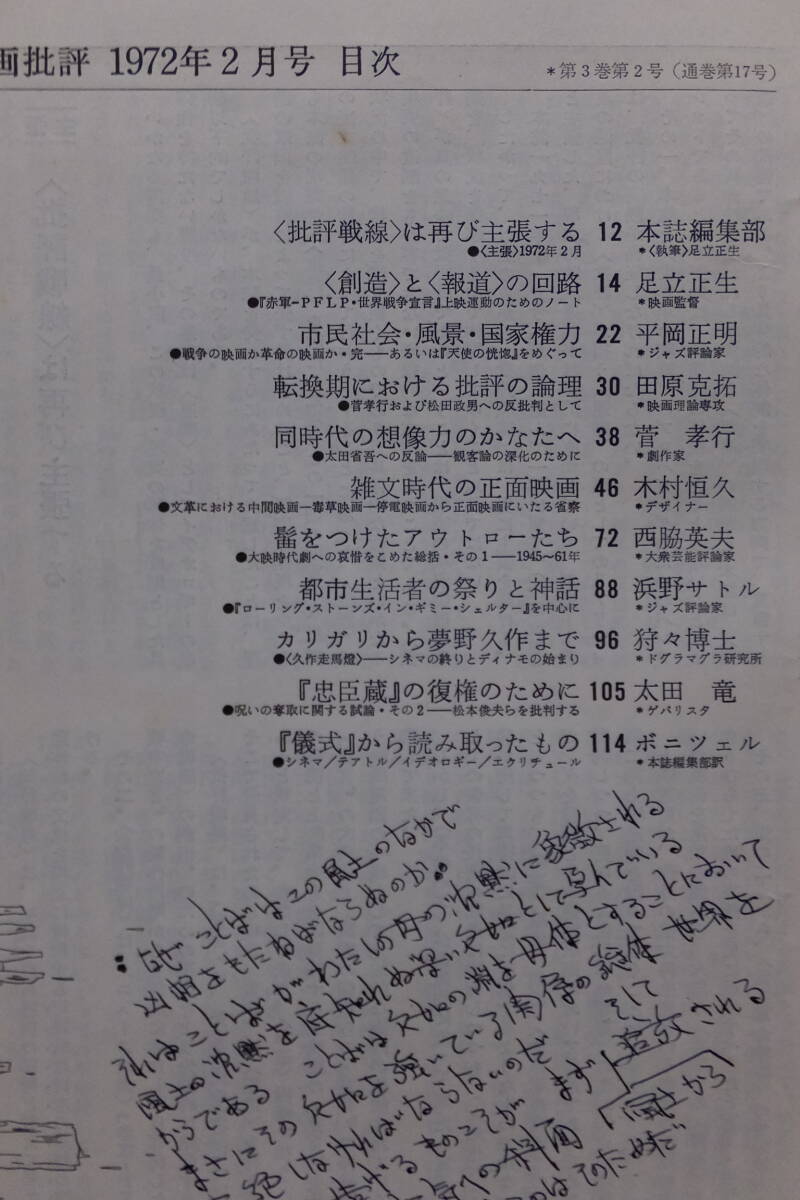 画批評 1972年2月号 目次
*第3巻第2号(通巻第17号)
〈批評戦線〉は再び主張する 12 本誌編集部
●〈主張〉1972年2月 *〈執筆〉足立正生
〈創造〉と〈報道〉の回路 14 足立正生
●『赤軍−PFLP・世界戦争宣言』上映運動のためのノート *映画監督
市民社会・風景・国家権力 22 平岡正明
●戦争の映画か革命の映画か・完──あるいは『天使の恍惚』をめぐって *ジャズ評論家
転換期における批評の論理 30 田原克拓
●菅孝行および松田政男への反批判として *映画理論専攻
同時代の想像力のかなたへ 38 菅 孝行
●太田省吾への反論──観客論の深化のために *劇作家
雑文時代の正面映画 46 木村恒久
●文革における中間映画—毒草映画—停電映画から正面映画にいたる省察 *デザイナー
髷をつけたアウトローたち 72 西脇英夫
●大映時代劇への哀惜をこめた総括・その1──1945〜61年 *大衆芸能評論家
都市生活者の祭りと神話 88 浜野サトル
●『ローリング・ストーンズ・イン・ギミー・シェルター』を中心に *ジャズ評論家
カリガリから夢野久作まで 96 狩々博士
●〈久作走馬燈〉──シネマの終りとディナモの始まり *ドグラマグラ研究所
『忠臣蔵』の復権のために 105 太田 竜
●呪いの奪取に関する試論・その2──松本俊夫らを批判する *ゲバリスタ
『儀式』から読み取ったもの 114 ボニツェル
●シネマ/テアトル/イデオロギー/エクリチュール *本誌編集部訳
ことばはこの風土のなかで
出娼をもたねばならぬのか
それはことばがわたしの内の沈黙に象徴される
風土の沈黙を底知れぬ深い欠如として孕んでいる
からである ことばは欠如の淵を母体とすることにおいて
まさにその欠如を強いている関係の総体 世界を
しなければならないのだ そして
るものこそが まず 追放される
への 風土から
のはそのためだ